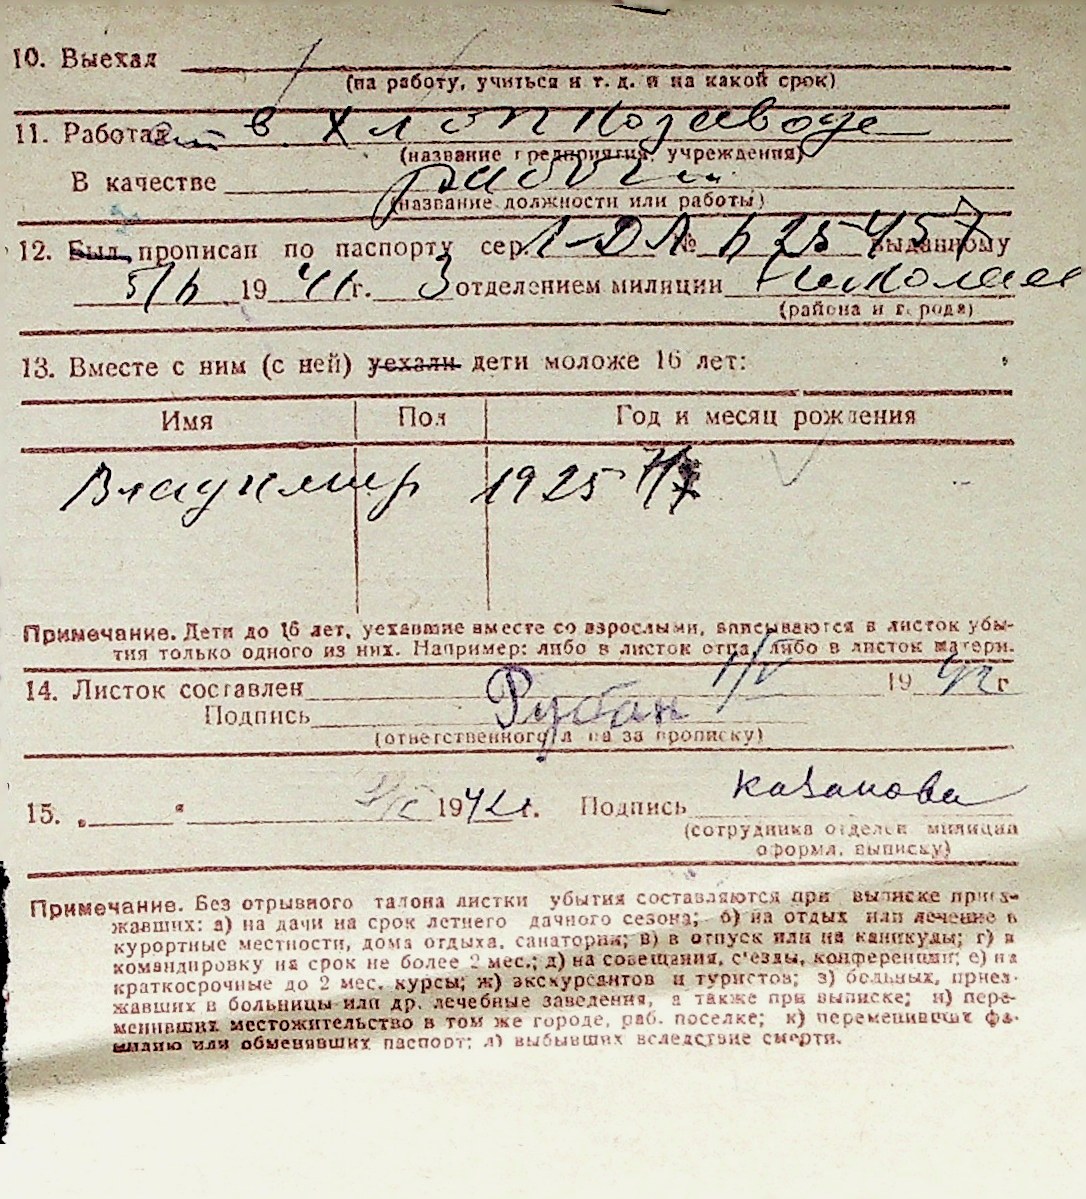 10. Выехал
(на работу, учиться и т. д. и на какой срок)
11. Работает в Хлопкозаводе
(название предприятия, учреждения)
В качестве рабочий
(название должности или работы)
12. Был прописан по паспорту сер. № 625457 выданному
5/6 1941 г. 3 отделением милиции
(района и города)
13. Вместе с ним (с ней) уехали дети моложе 16 лет:
Имя Пол Год и месяц рождения
Владимир 1925
Примечание. Дети до 16 лет, уехавшие вместе со взрослыми, вписываются в листок убы-
тия только одного из них. Например: либо в листок отца, либо в листок матери.
14. Листок составлен 1/V 1942 г
Подпись Рубан
(ответственного л на за прописку)
15. „ “ 1942 г. Подпись Казанова
(сотрудника отделен. милиции
оформл. выписку)
Примечание. Без отрывного талона листки убытия составляются при выписке приез-
жавших: а) на дачи на срок летнего дачного сезона; б) на отдых или лечение в
курортные местности, дома отдыха, санатории; в) в отпуск или на каникулы; г) в
командировку на срок не более 2 мес.; д) на совещания, с'езды, конференции; е) на
краткосрочные до 2 мес. курсы; ж) экскурсантов и туристов; з) больных, приез-
жавших в больницы или др. лечебные заведения, а также при выписке; и) пере-
менивших местожительство в том же городе, раб. поселке; к) переменивших фа-
милию или обменявших паспорт; л) выбывших вследствие смерти.